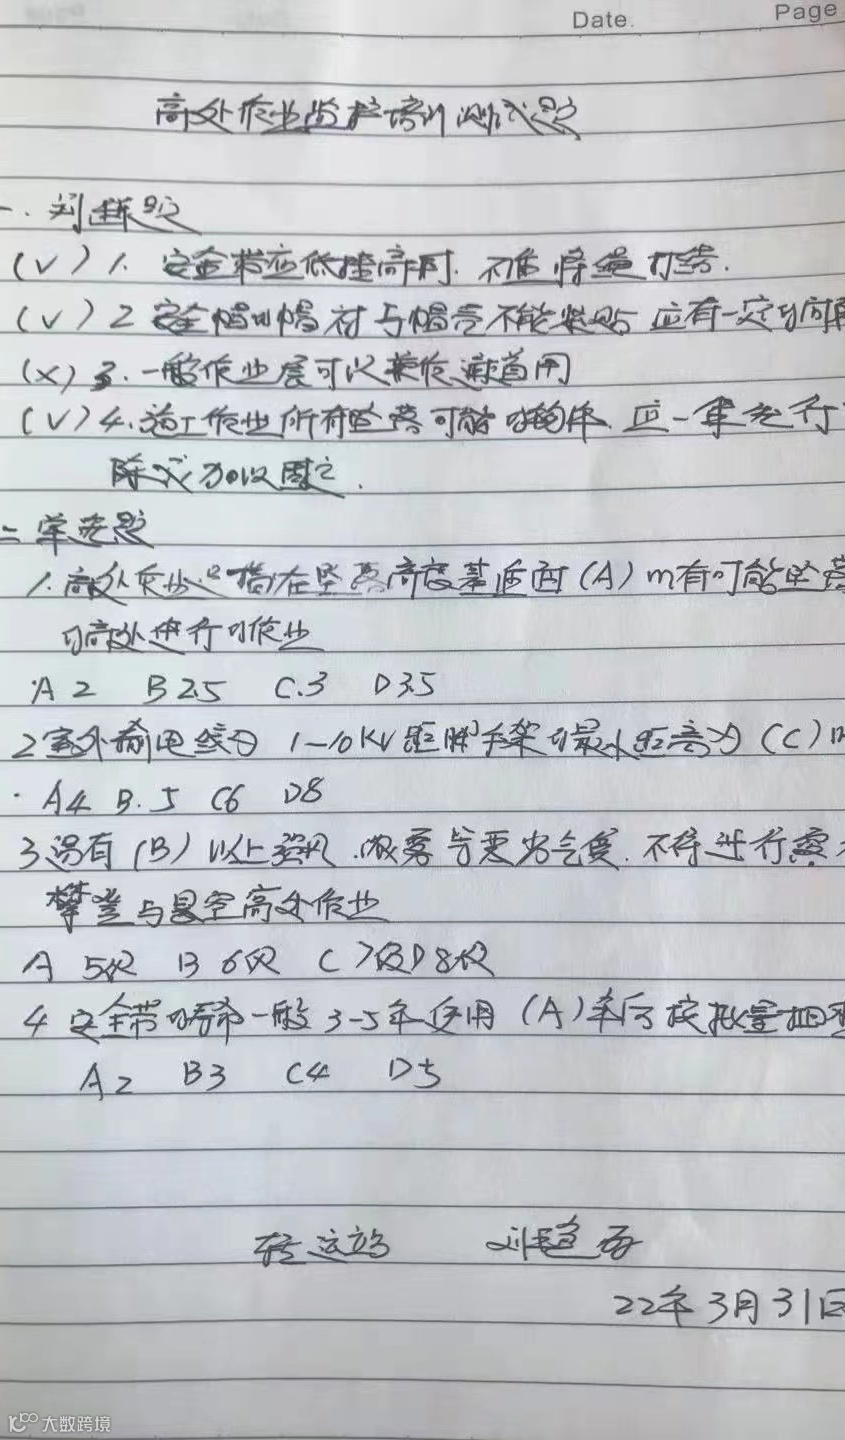 Date.
Page
高处作业监护培训测试题
一. 判断题
(√) 1. 安全带应低挂高用. 不准将绳打结.
(√) 2 安全帽的帽衬与帽壳不能紧贴 应有一定的间
(×) 3. 一般作业层可以兼作
(√) 4. 施工作业所有坠落可能的物体. 应一律先行
除或加以固定.
二 单选题
1. 高处作业是指在坠落高度基准面 (A) m有可能坠落
的高处进行的作业
A 2 B 2.5 C.3 D 3.5
2 室外输电线为 1-10KV 距脚手架的最小距离为 (C) m
A4 B.5 C6 D8
3 遇有 (B) 以上强风. 浓雾等恶劣气候. 不得进行露天
攀登与悬空高处作业
A 5级 B 6级 C 7级 D 8级
4 安全带的寿命一般 3-5年 使用 (A) 年后 按批量抽
A2 B3 C4 D5
转运站
22年3月31日
大数跨境